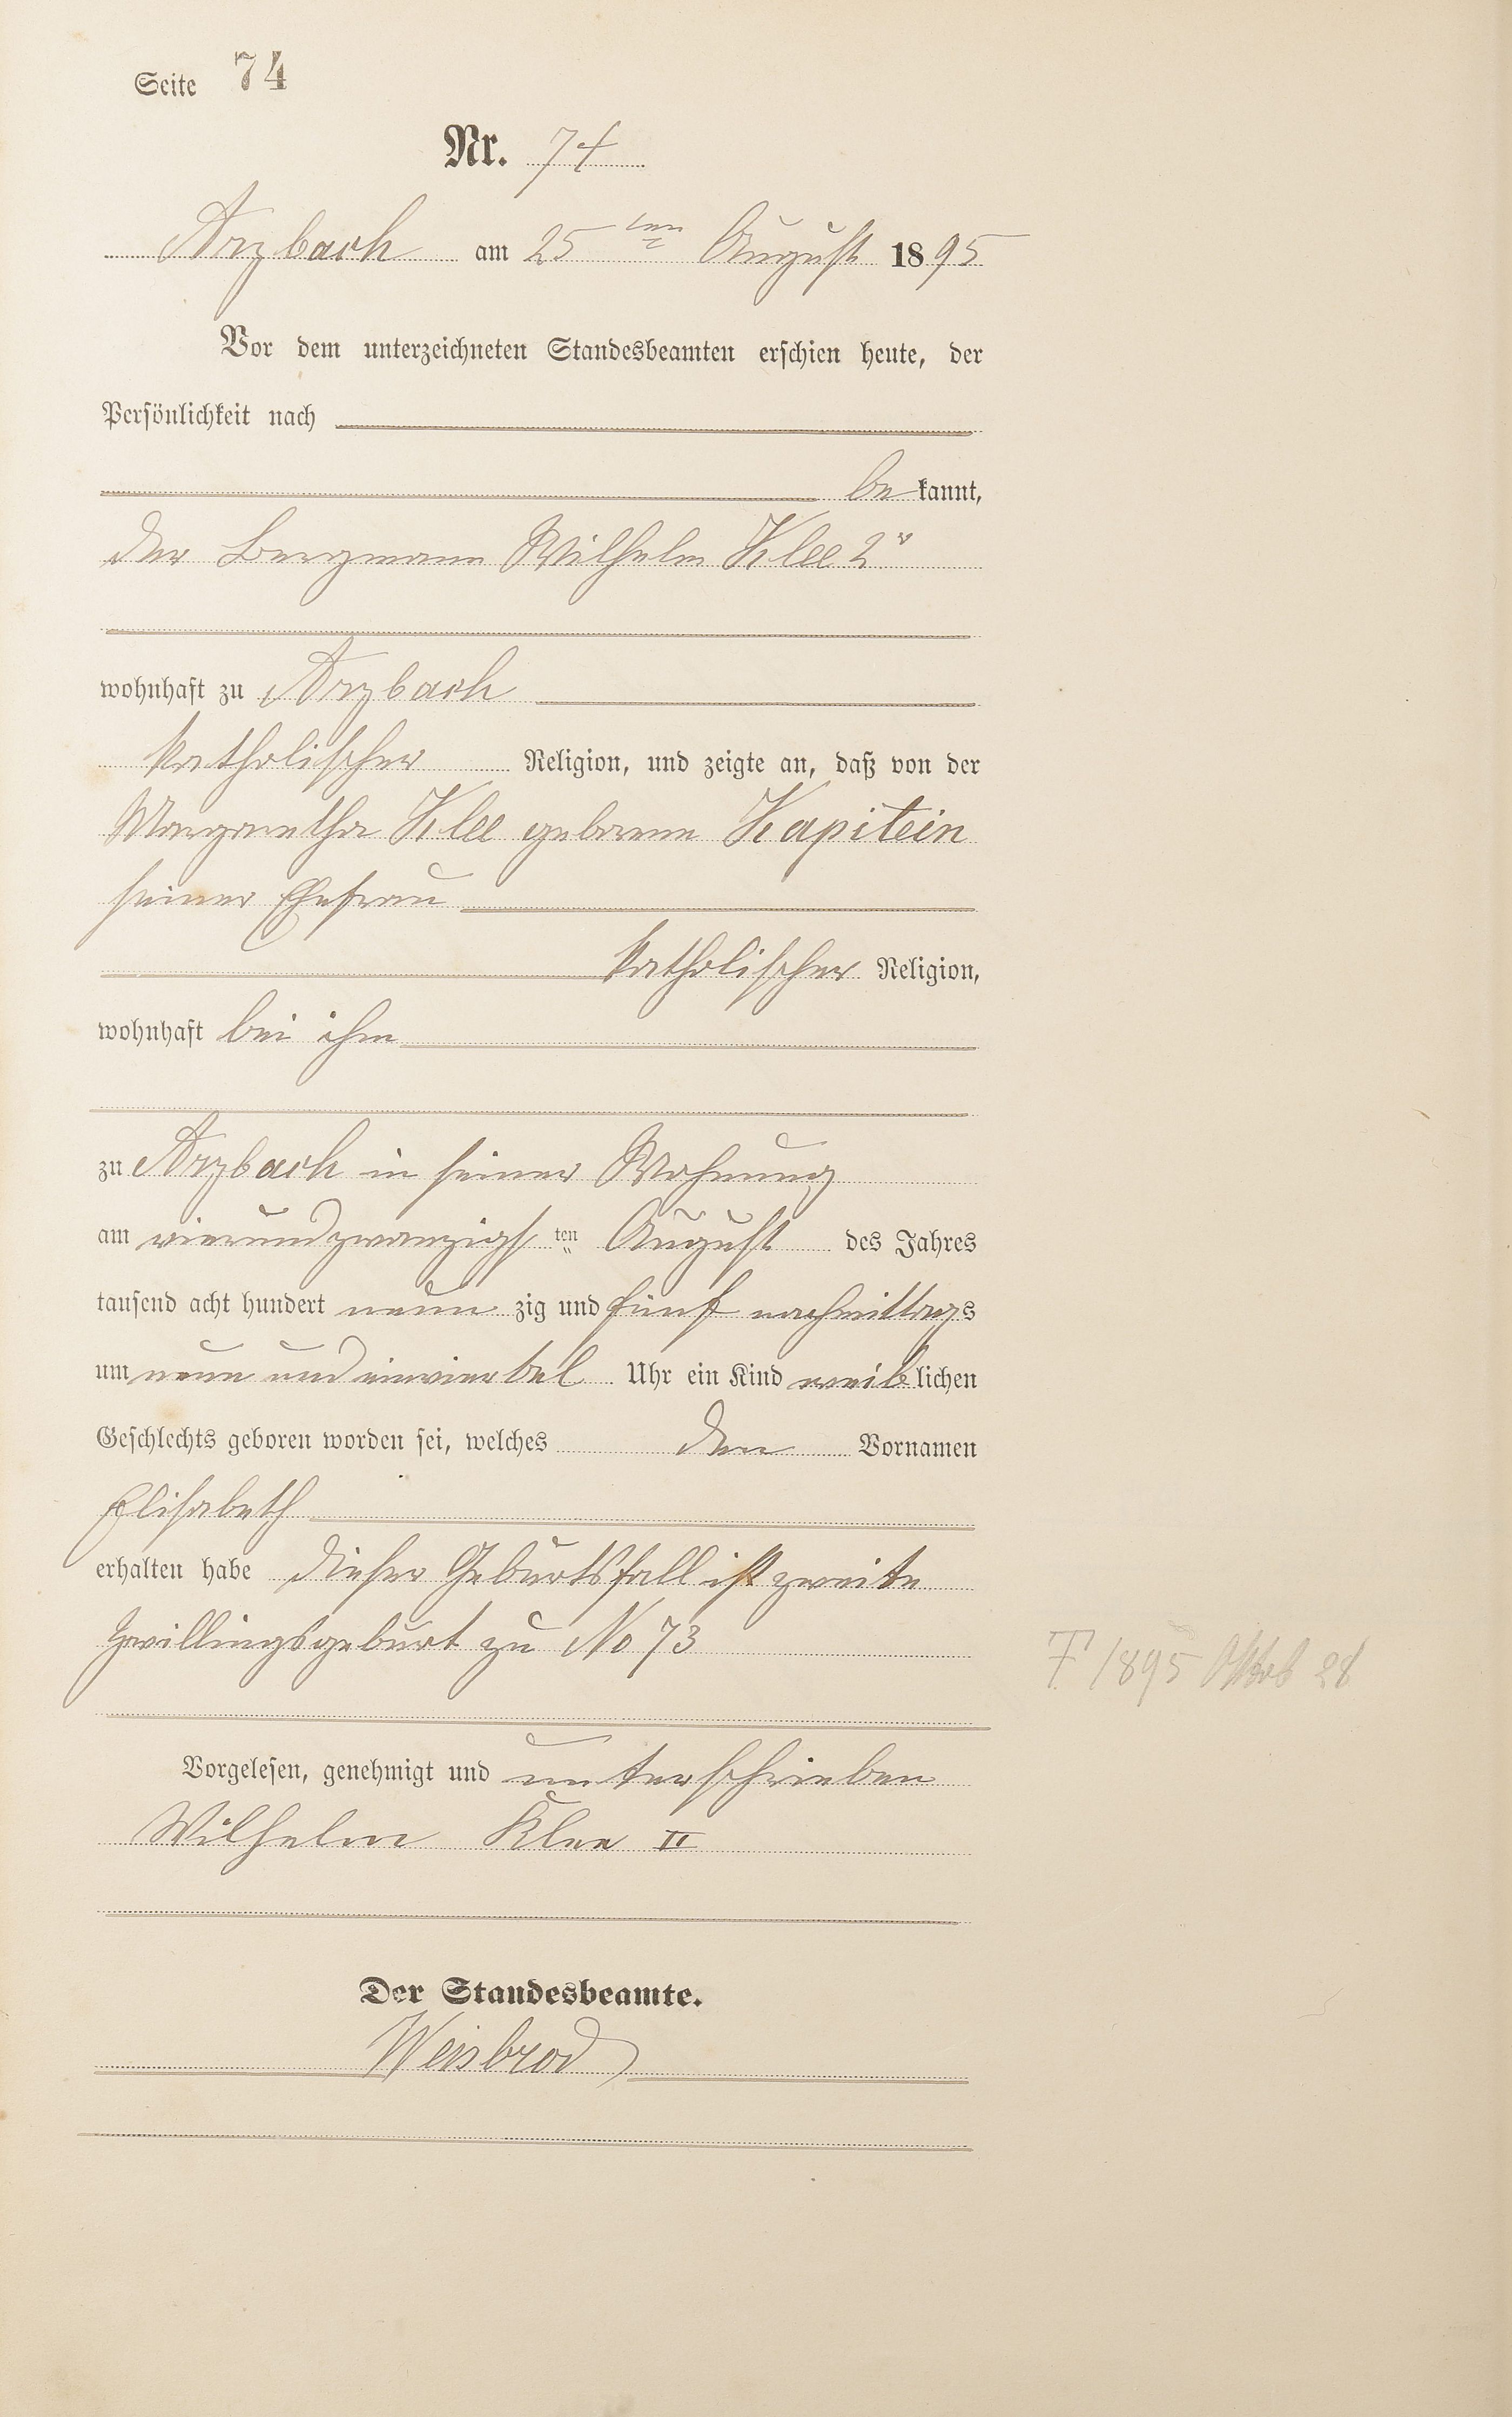 Seite 74
Nr. 74
Arzbach am 25ten August 1895
Vor dem unterzeichneten Standesbeamten erschien heute, der
Persönlichkeit nach
bekannt,
der Bergmann Wilhelm Klee 2r
wohnhaft zu Arzbach
katholischer Religion, und zeigte an, daß von der
Margaretha Klee geborene Kapitein
seiner Ehefrau
katholischer Religion,
wohnhaft bei ihm
zu Arzbach in seiner Wohnung
am vierundzwanzigsten August des Jahres
tausend acht hundert neunzig und fünf nachmittags
um neun und einviertel Uhr ein Kind weiblichen
Geschlechts geboren worden sei, welches den Vornamen
Elisabeth
erhalten habe Dieser Geburtsfall ist zweite
Zwillingsgeburt zu No 73
1895 Oktob 28
Vorgelesen, genehmigt und unterschrieben
Wilhelm Klee II
Der Standesbeamte.
Weisbrod